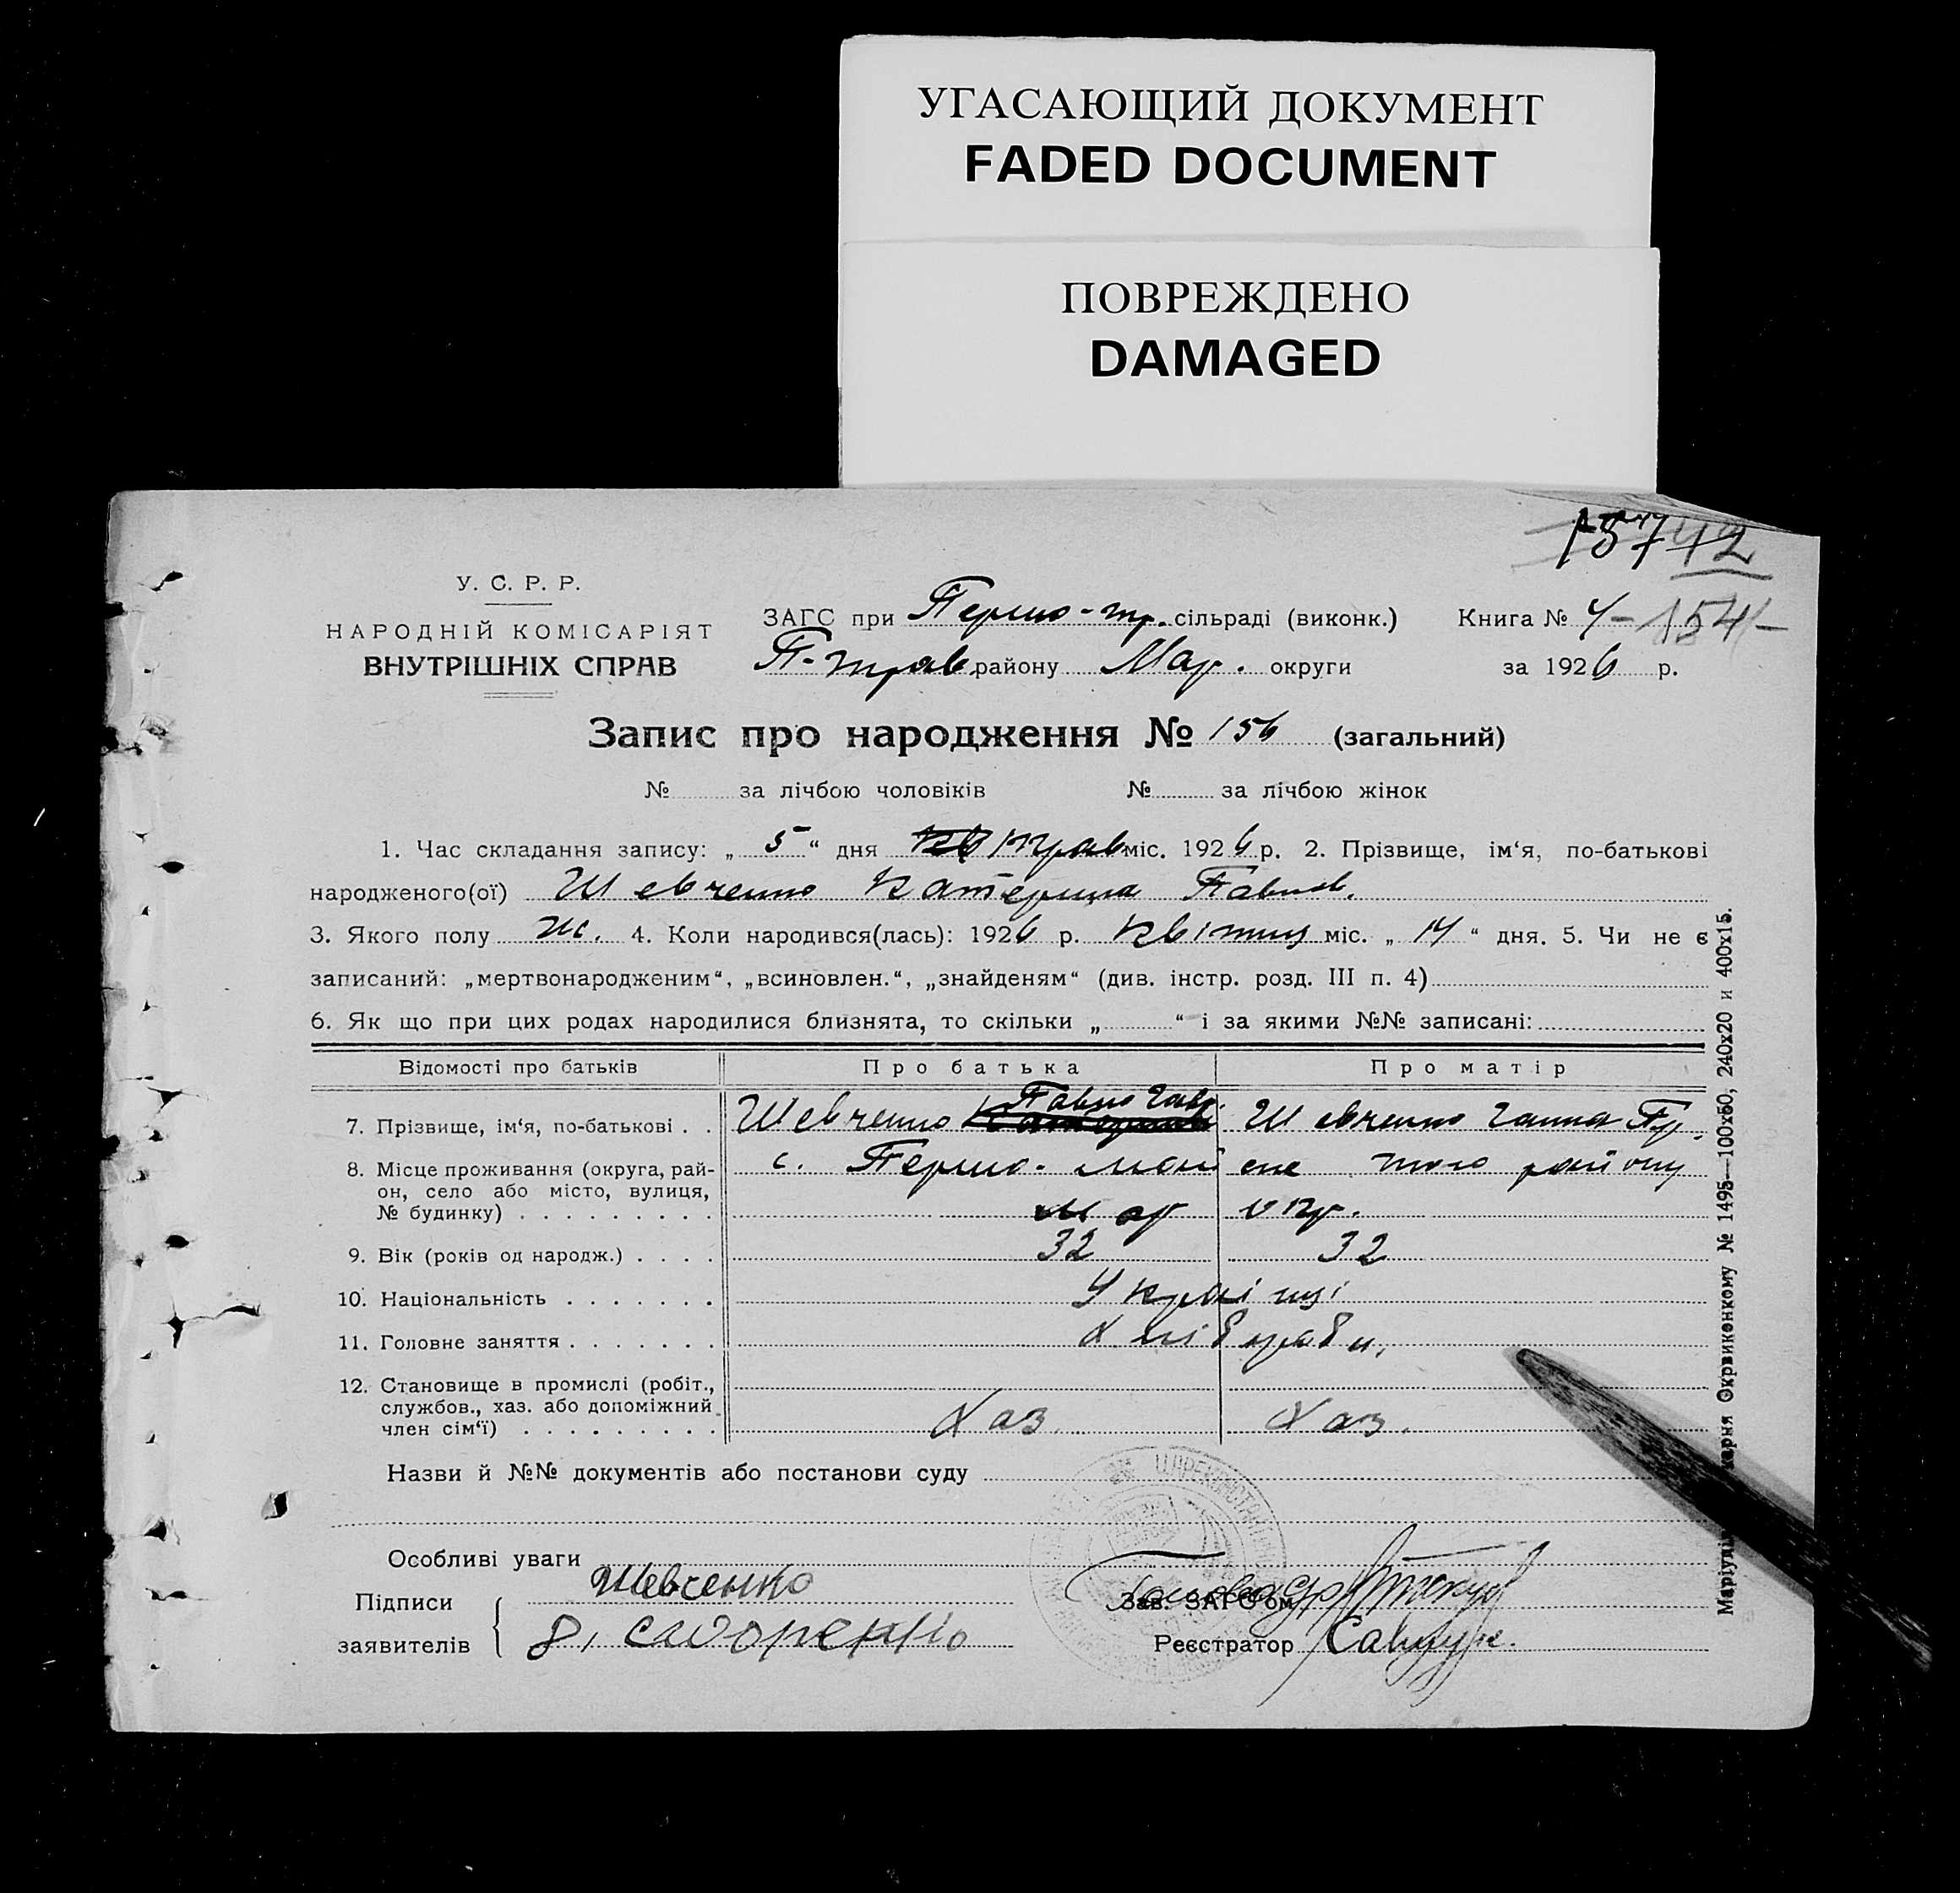 УГАСАЮЩИЙ ДОКУМЕНТ
FADED DOCUMENT
ПОВРЕЖДЕНО
DAMAGED
У. С. Р. Р.
НАРОДНІЙ КОМІСАРІЯТ
ВНУТРІШНІХ СПРАВ
ЗАГС при Першо-тр. сільраді (виконк.) Книга № 4-154-
П-трав. району Мар. округи за 1926 р.
Запис про народження № 156 (загальний)
№ за лічбою чоловіків № за лічбою жінок
1. Час складання запису: „ 5 “ дня трав міс. 1926 р. 2. Прізвище, ім‘я, по-батькові
народженого(ої) Шевченко Катерина Павлов.
3. Якого полу ж. 4. Коли народився(лась): 1926 р. Квітня міс. „ 14 “ дня. 5. Чи не є
записаний: „мертвонародженим“, „всиновлен.“, „знайденям“ (див. інстр. розд. III п. 4)
6. Як що при цих родах народилися близнята, то скільки „ “ і за якими №№ записані:
Відомості про батьків Про батька Про матір
7. Прізвище, ім‘я, по-батькові . . Шевченко Павло Шевченко Ганна
8. Місце проживання (округа, рай- с. Першо- того району
он, село або місто, вулиця,
№ будинку) . . . . . . . . . Мар окр.
9. Вік (років од народж.) . . . . 32 32
10. Національність . . . . . . . Українці
11. Головне заняття . . . . . . . Хліброби.
12. Становище в промислі (робіт.,
службов., хаз. або допоміжний Хаз. Хаз.
член сім‘ї) . . . . . . . . .
Назви й №№ документів або постанови суду
Особливі уваги
Підписи Шевченко Зав. ЗАГС‘ом
заявителів Сидоренко Реєстратор
№ 1495—100х50, 240х20 и 400х15.